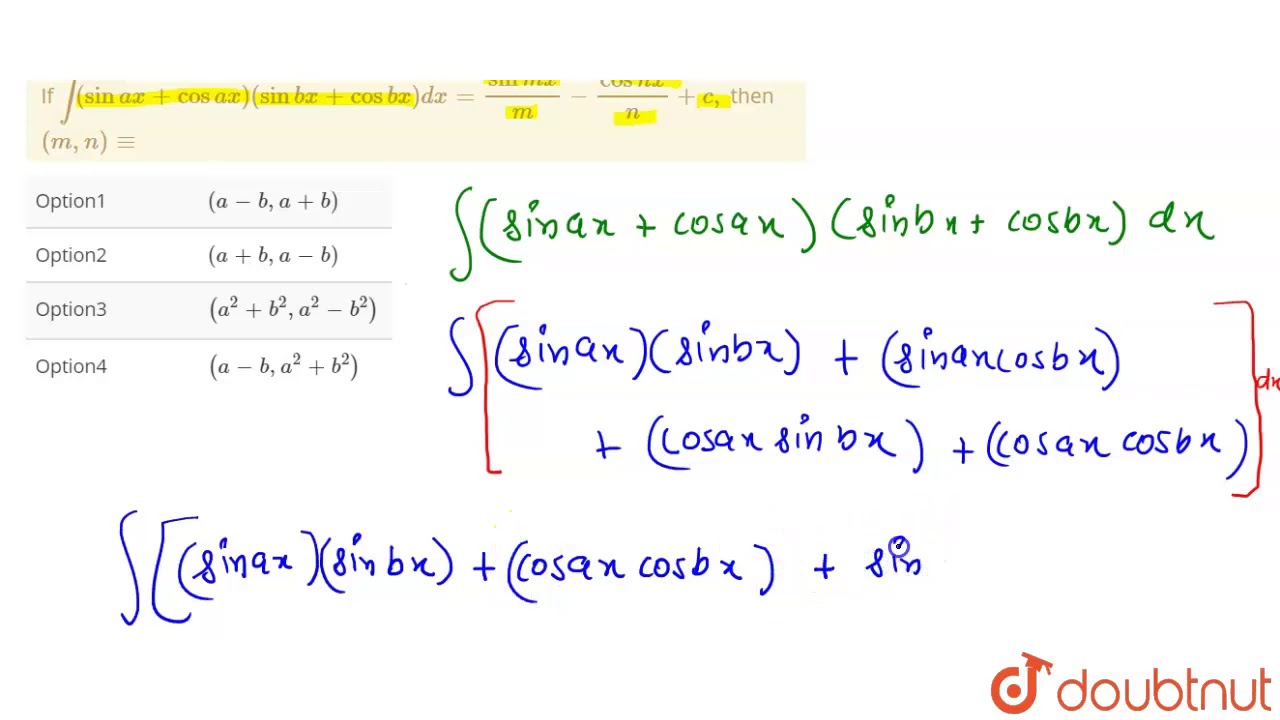 If ∫(sin ax + cos ax)(sin bx + cos bx)dx = sin mx/m − cos nx/n + c, then
(m, n) ≡
Option1 (a − b, a + b)
Option2 (a + b, a − b)
Option3 (a² + b², a² − b²)
Option4 (a − b, a² + b²)
∫(sinax + cosax)(sinbx + cosbx) dx
∫[(sinax)(sinbx) + (sinaxcosbx)
+ (cosax sinbx) + (cosax cosbx)]dx
∫[(sinax)(sinbx) + (cosax cosbx) + sin
doubtnut